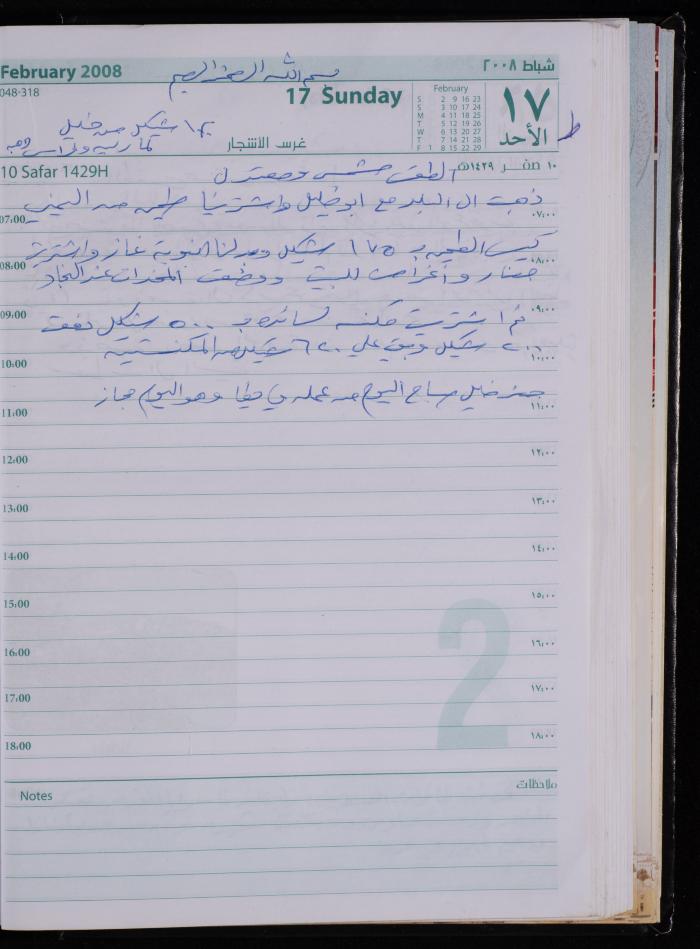 February 2008
بسم الله الرحمن الرحيم
شباط ٢٠٠٨
048-318
17 Sunday
February
S 2 9 16 23
S 3 10 17 24
M 4 11 18 25
T 5 12 19 26
W 6 13 20 27
T 7 14 21 28
F 1 8 15 22 29
١٧
الأحد
شيكل من خليل
غرس الأشجار
10 Safar 1429H
١٠ صفر ١٤٢٩هـ
الطقس مشمس ومعتدل
ذهبت الى البلد مع ابو خليل واشترينا طحين من
07:00
٠٧:٠٠
كيس الطحين بـ ١٧٥ شيكل وبدلنا انبوبة غاز واشتريت
08:00
٠٨:٠٠
خضار وأغراض للبيت ووضعت المخدات عند النجاد
09:00
٠٩:٠٠
ثم اشتريت مكنسة بـ ٥٠٠ شيكل دفعت
٢٠٠ شيكل وبقي علي
10:00
١٠:٠٠
حضر خليل صباح اليوم من عمله في وهو اليوم مجاز
11:00
١١:٠٠
12:00
١٢:٠٠
13:00
١٣:٠٠
14:00
١٤:٠٠
15:00
١٥:٠٠
16:00
١٦:٠٠
17:00
١٧:٠٠
18:00
١٨:٠٠
2
Notes
ملاحظات